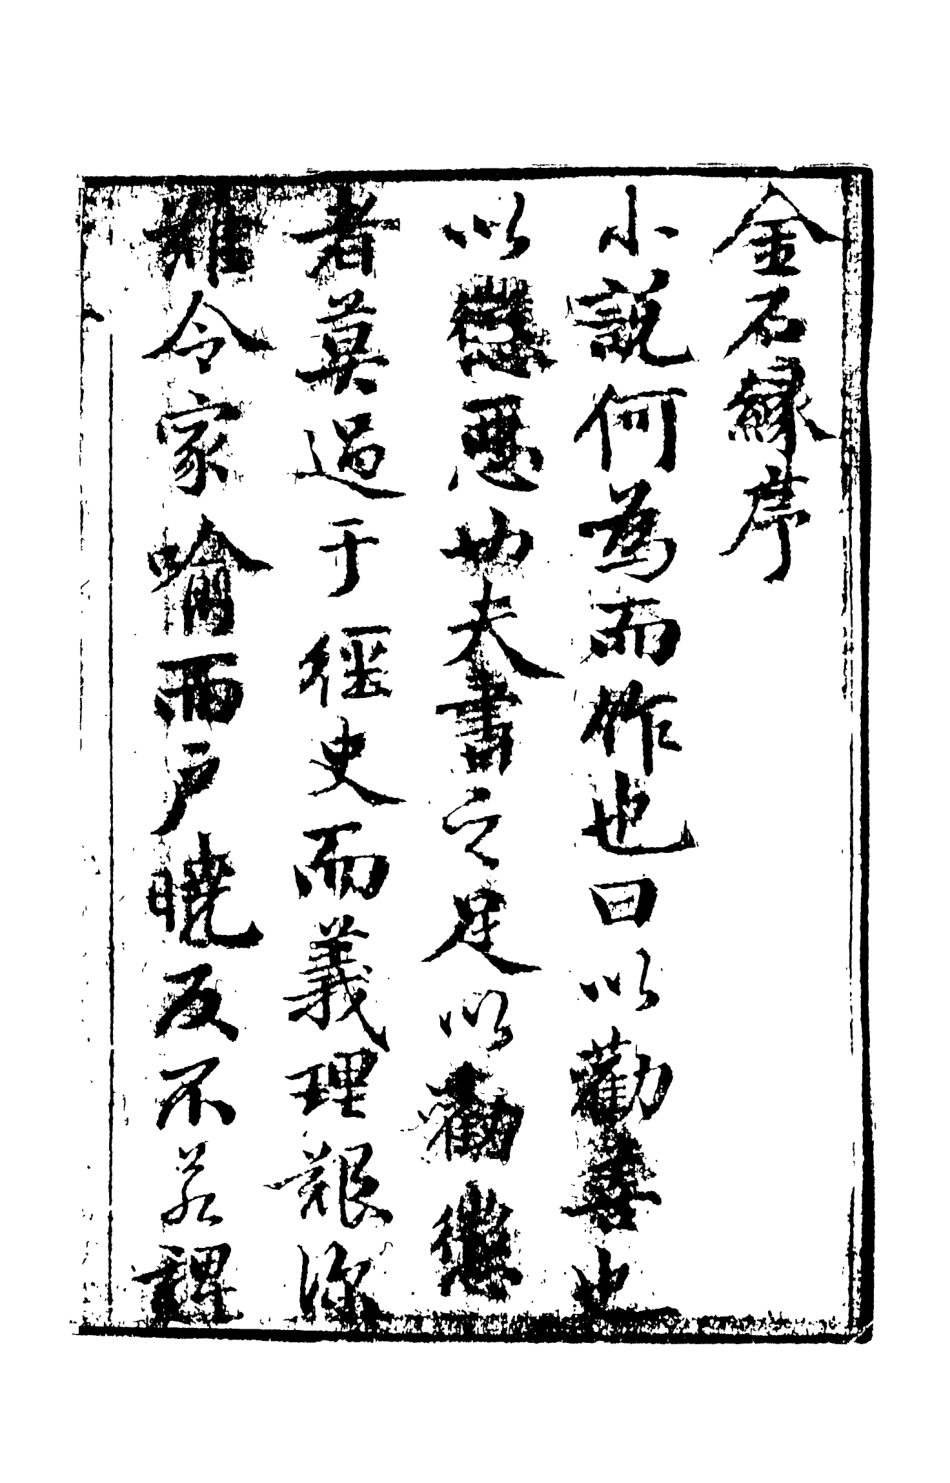 金石緣序
小說何為而作也曰以勸善也
以懲惡也夫書之足以勸懲
者莫過于經史而義理艱深
難令家喻而戶曉反不若稗